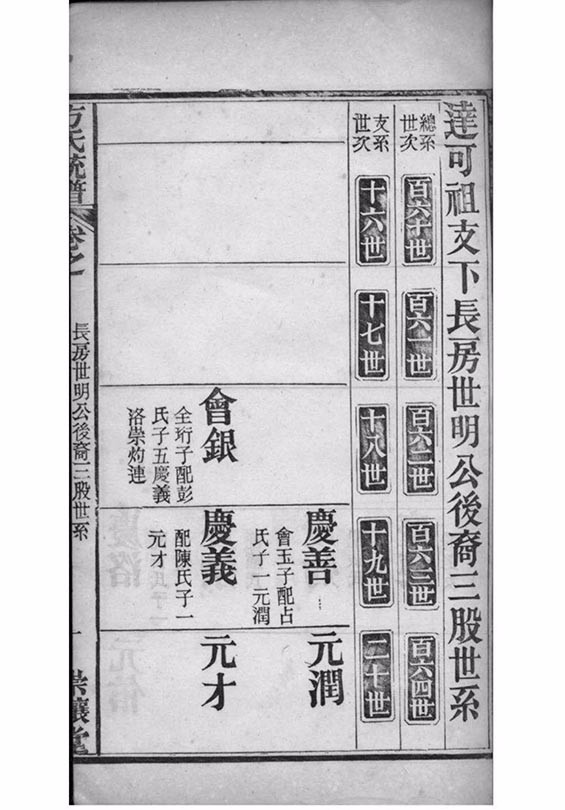 達可祖支下長房世明公後裔三股世系
總系
世次
百六十世
百六一世
百六二世
百六三世
百六四世
支系
世次
十六世
十七世
十八世
十九世
二十世
慶善
會玉子配占
氏子一元潤
元潤
會銀
全珩子配彭
氏子五慶義
洛崇灼連
慶義
配陳氏子一
元才
元才
方氏統譜
卷之
長房世明公後裔三股世系
一